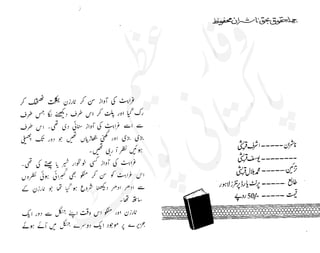 جملہ حقوق بحق ناشران محفوظ
ناشران ------ اشرف قریشی
------------ یوسف قریشی
تزئین ------ محمد بلال قریشی
طابع ------ پرنٹ یارڈ پرنٹرز لاہور
قیمت ------ 50/- روپے
غراہٹ کی آواز سن کر ٹارزن یکلخت ٹھٹھک کر
رک گیا اور پلٹ کر اس طرف دیکھنے لگا جس طرف
سے اسے غراہٹ کی آواز سنائی دی تھی۔ اس طرف
بڑی بڑی اور گھنی جھاڑیاں تھیں جو دور تک پھیلی
ہوئیں نظر آ رہی تھیں۔
غراہٹ کی آواز کسی خونخوار شیر یا چیتے کی تھی۔
اس غراہٹ کو سن کر منکو بھی گھبرائی ہوئی نظروں
سے ادھر ادھر دیکھنا شروع ہو گیا تھا جو ٹارزن کے
ساتھ تھا۔
ٹارزن اور منکو اس وقت اپنے جنگل سے دور ایک
جزیرے پر موجود ایک دوسرے جنگل میں آئے ہوئے